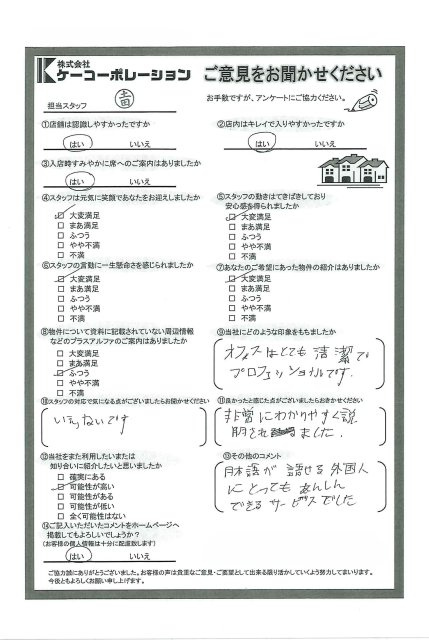 株式会社
ケーコーポレーション
ご意見をお聞かせください
担当スタッフ
お手数ですが、アンケートにご協力ください。
①店舗は認識しやすかったですか
はい いいえ
②店内はキレイで入りやすかったですか
はい いいえ
③入店時すみやかに席へのご案内はありましたか
はい いいえ
④スタッフは元気に笑顔であなたをお迎えしましたか
☑ 大変満足
□ まあ満足
□ ふつう
□ やや不満
□ 不満
⑤スタッフの動きはてきぱきしており
安心感を得られましたか
☑ 大変満足
□ まあ満足
□ ふつう
□ やや不満
□ 不満
⑥スタッフの言動に一生懸命さを感じられましたか
☑ 大変満足
□ まあ満足
□ ふつう
□ やや不満
□ 不満
⑦あなたのご希望にあった物件の紹介はありましたか
☑ 大変満足
□ まあ満足
□ ふつう
□ やや不満
□ 不満
⑧物件について資料に記載されていない周辺情報
などのプラスアルファのご案内はありましたか
□ 大変満足
□ まあ満足
☑ ふつう
□ やや不満
□ 不満
⑨当社にどのような印象をもちましたか
オフィスはとても清潔で
プロフェッショナルです.
⑩スタッフの対応で気になる点がございましたらお聞かせください
いえないです
⑪良かったと感じた点がございましたらお聞かせください
非常にわかりやすく説
明されました.
⑫当社をまた利用したいまたは
知り合いに紹介したいと思いましたか
□ 確実にある
☑ 可能性が高い
□ 可能性がある
□ 可能性が低い
□ 全く可能性はない
⑬その他のコメント
日本語が話せる外国人
にとってもあんしん
できるサービスでした
⑭ご記入いただいたコメントをホームページへ
掲載してもよろしいでしょうか?
(お客様の個人情報は十分に配慮致します)
はい いいえ
ご協力誠にありがとうございました。お客様の声は貴重なご意見・ご要望として出来る限り活かしていくよう努力してまいります。
今後ともよろしくお願い申し上げます。